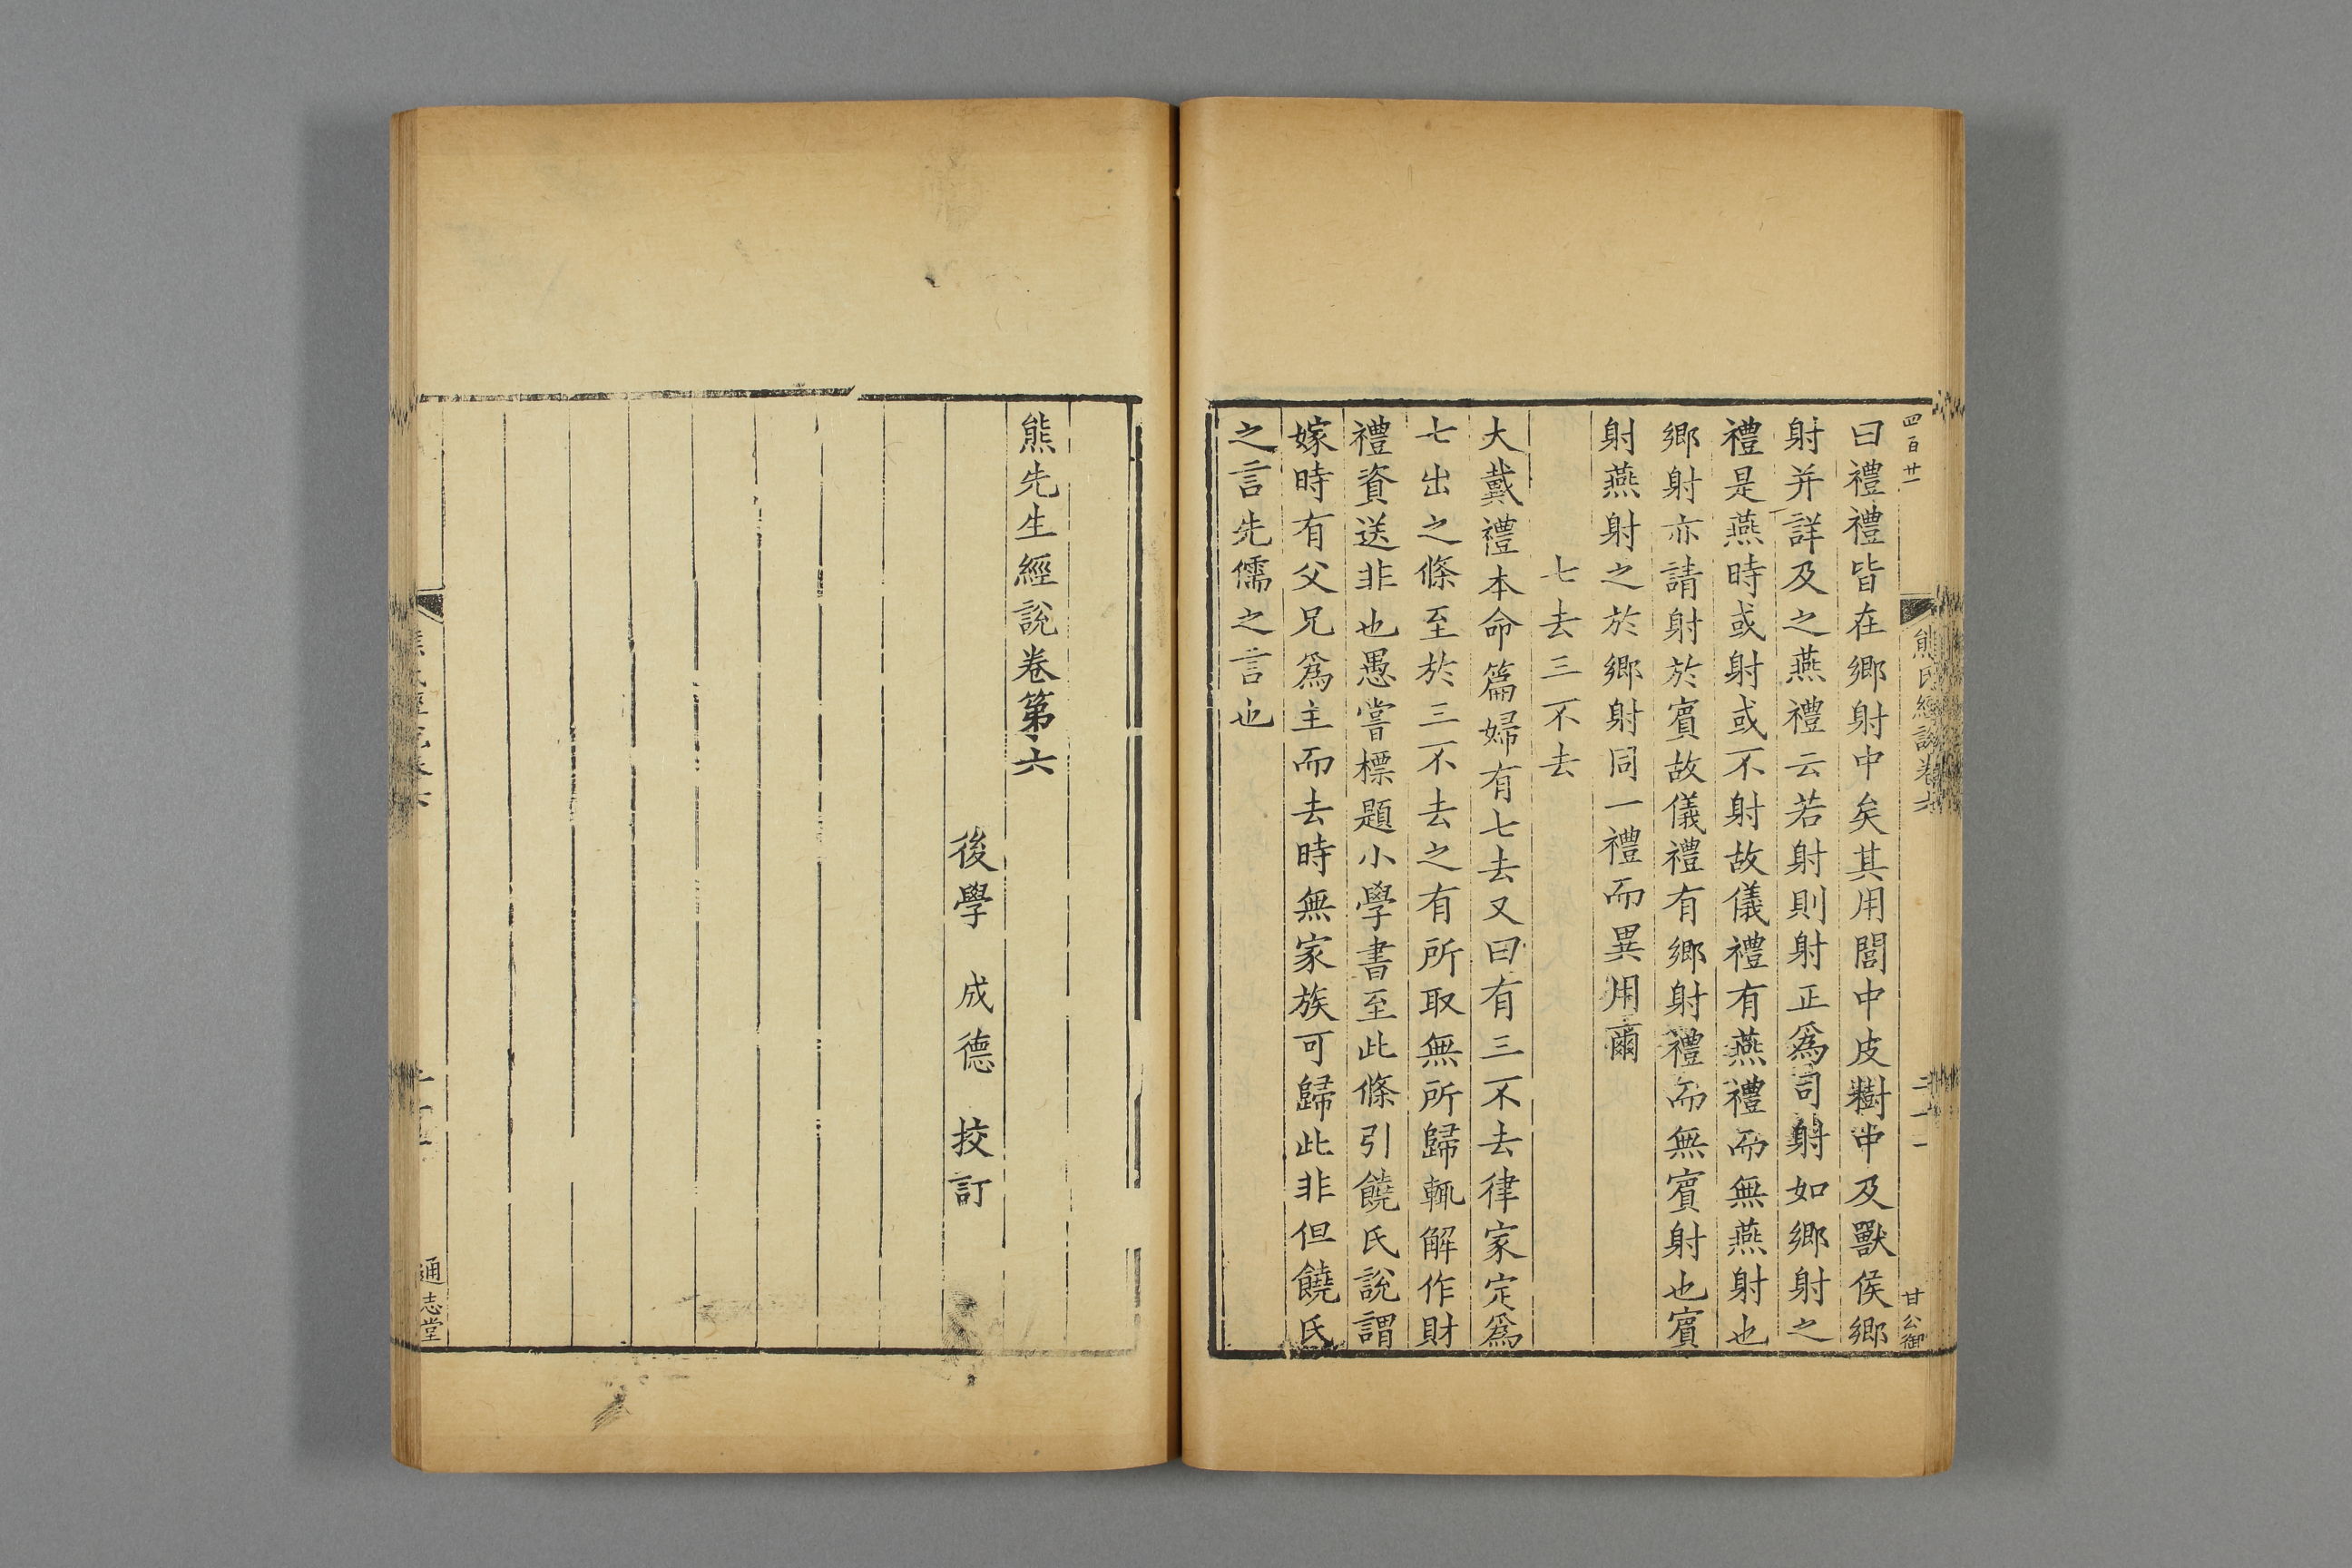 四百廿一
熊氏經說卷六
二十一
甘公御
曰禮禮皆在鄉射中矣其用閭中皮樹中及獸侯鄉
射并詳及之燕禮云若射則射正為司射如鄉射之
禮是燕時或射或不射故儀禮有燕禮而無燕射也
鄉射亦請射於賔故儀禮有鄉射禮而無賔射也賔
射燕射之於鄉射同一禮而異用爾
七去三不去
大戴禮本命篇婦有七去又曰有三不去律家定為
七出之條至於三不去之有所取無所歸輒解作財
禮資送非也愚嘗標題小學書至此條引饒氏說謂
嫁時有父兄為主而去時無家族可歸此非但饒氏
之言先儒之言也
熊先生經說卷第六
後學 成德 挍訂
通志堂